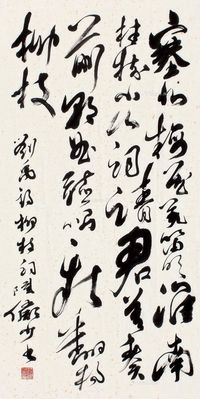 塞北梅花羌笛吹淮南
桂樹小山詞請君莫奏
前朝曲聽唱新翻楊
柳枝
劉禹錫柳枝詞陸儼少書